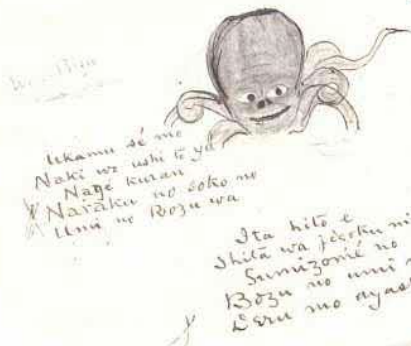 Ukamu sé mo
Naki wo ushi to ya
Nagé kuran
Naraku no soko no
Umi no Bozu wa
Ita hito e
Shita wa jigoku ni
Sumizomé no
Bozu no umi
Deru mo ayas